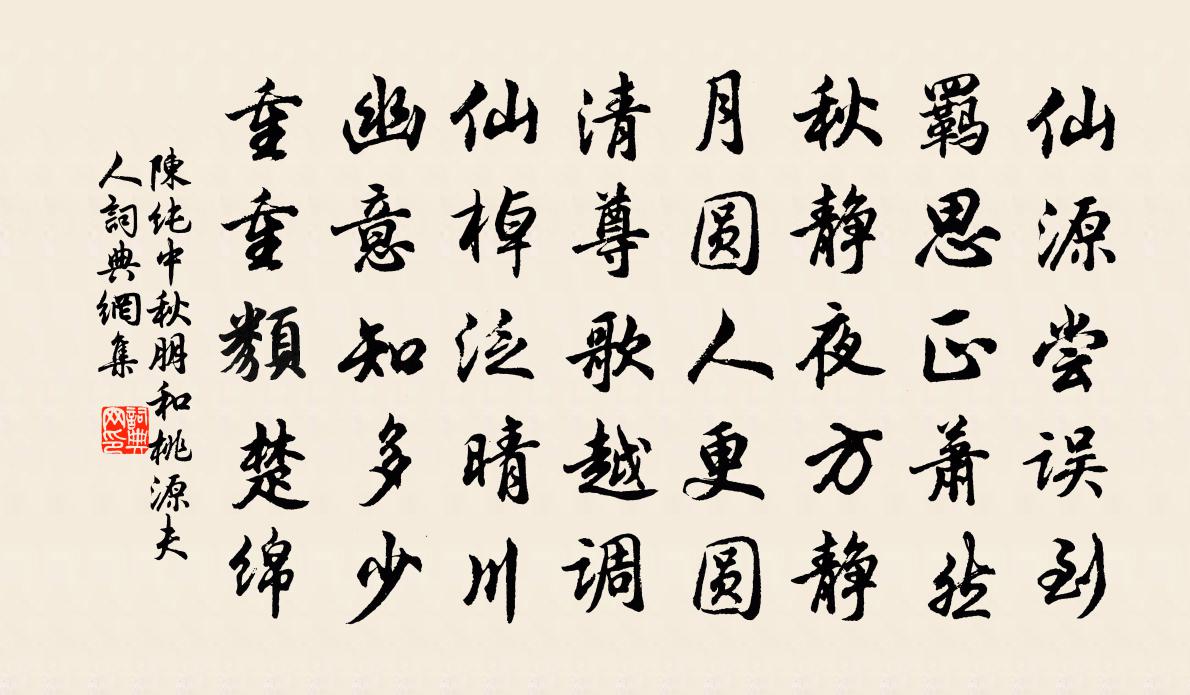 仙源尝误到
羁思正萧然
秋静夜方静
月圆人更圆
清尊歌越调
仙棹泛晴川
幽意知多少
重重类楚绵
陳纯中秋朋和桃源夫
人詞典網集
詞典网印